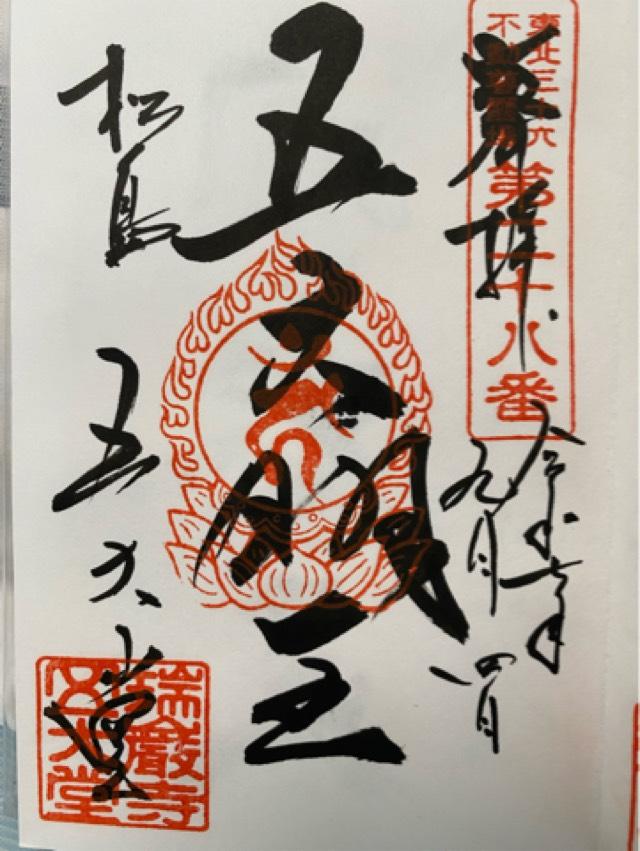 奉拝
東北三十六
不動尊霊場
第二十八番
令和七年
九月四日
五大明王
松島
五大堂
瑞巌寺
五大堂